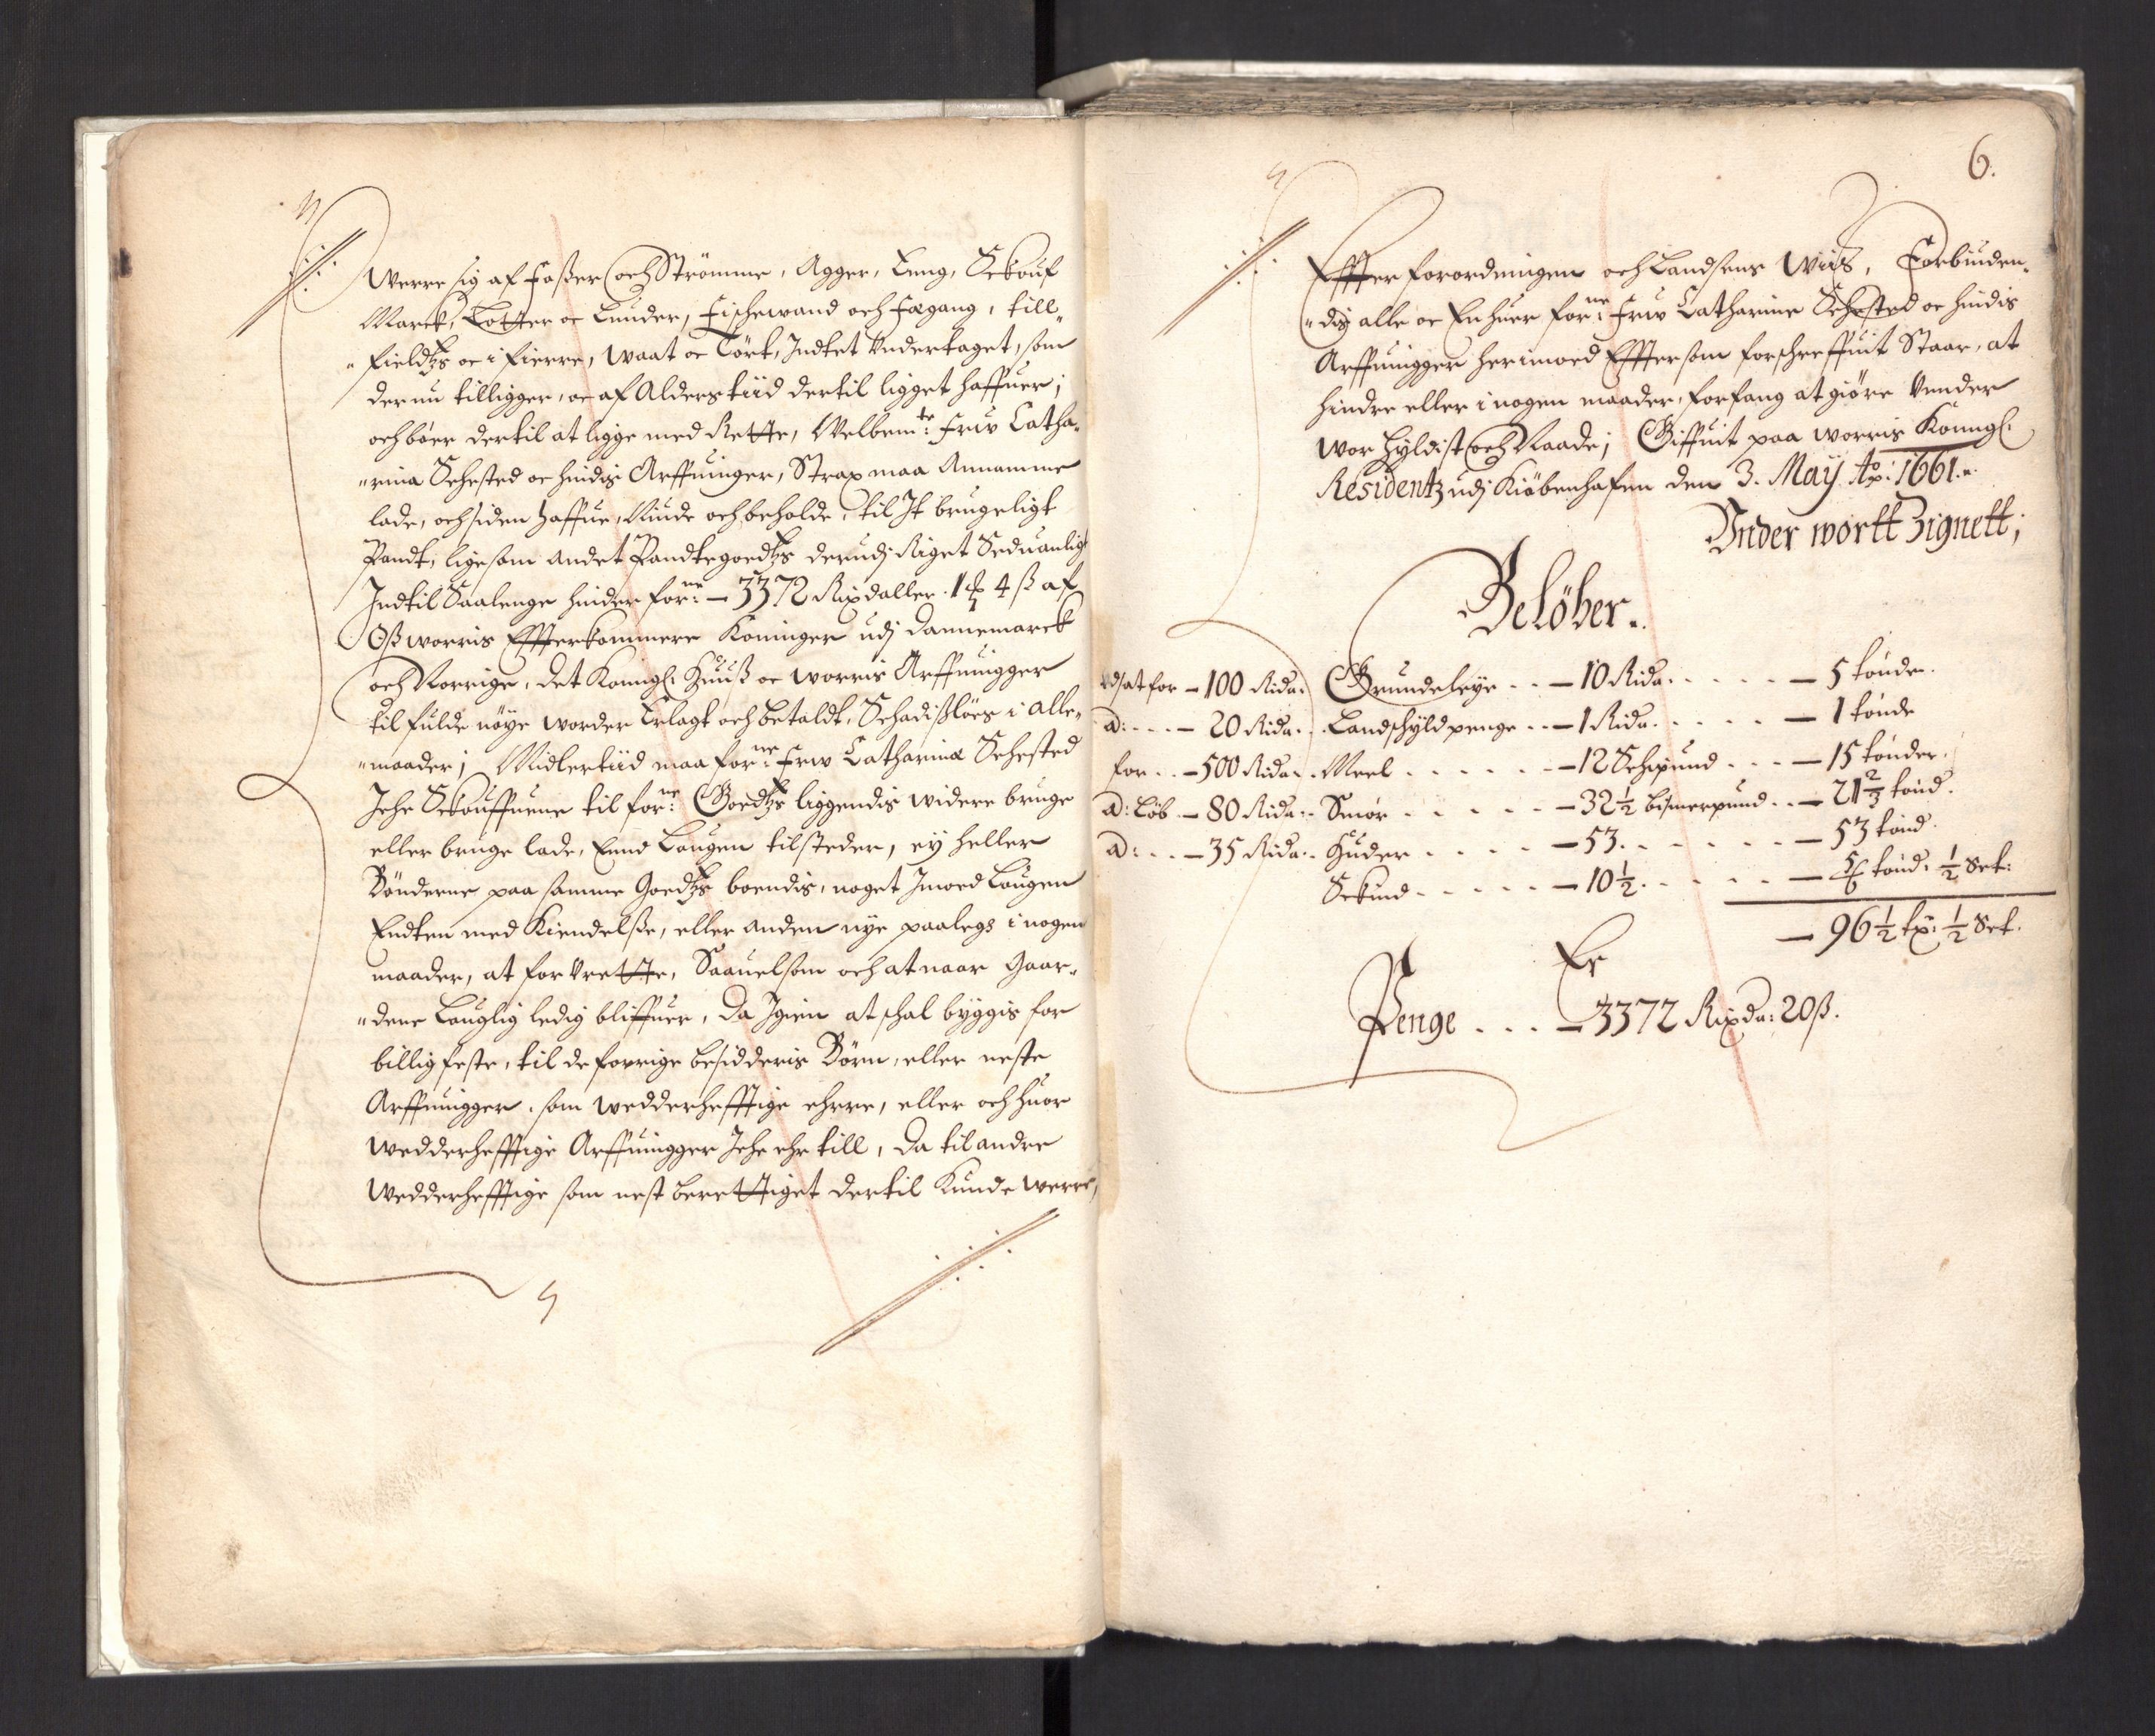 Werre sig af Foßer och Strömme, Agger, Eeng, Schouf
Marck, Lotter oc Lunder, Fischewand och Fægang, till
"fieldtzs oc i fierre, waat oc Tört, Indtet Undertaget, som
der nu tilligger, oc af Alders tiid dertil ligget haffuer;
och bör dertil at ligge med Rette, Welbemte: Frw Catha„
"rina Sehested oc hindis Arffuinger, Strax maa Annamme
lade, och siden haffue, Niude och beholde, til It brugeligt
Pandt, ligesom andet Pandtegoedtzs derudj Riget Seduanligt
Indtil Saalenge hinder forne: – 3372 Rixdaller 1 ꝶ 4 ß af
Oß worris Effterkommere Koninger udj Dannemarck
och Norrige, det Kongl: Huuß oc worris Arffuingger
til fulde nöye worder Erlagt och betaldt, Schadislöes i alle„
"maader; Midlertiid maa forne: Frw Catharina Sehested
Iche Schouffuene til forne: Goedtzs liggendis widere bruge
eller bruge lade, End Lougen tilsteder, ey heller
Bönderne paa samme Goedtzs boendis, noget Imoed Lougen
Endten med Kiendelße, eller anden nye paalegs i nogen
maader, at forUrette, Saauelsom och at naar Gaar„
"dene Louglig ledig bliffuer, Da Igien at schal byggis for
billig feste, til de forrige besidderis Börn, eller neste
Arffuingger, som wedderhefftige ehrre, eller och huor
wedderhefftige Arffuingger Iche ehr till, Da til andre
Wedderhefftige som nest berettiget dertil Kunde werre,
6.
Effter forordningen och Landsens Wiis, Forbiuden„
"dis alle oc Enhuer forne: Frw Catharine Sehested oc hindis
Arffuingger herimoed Efftersom forschreffuit Staar, at
hindre eller i nogen maader, forfang at giöre Under
wor Hyldist och Naade; Giffuit paa worris Konngl:
Residentz udj Kiöbenhafen den 3. May Ao: 1661.
Under wortt Zignett;
Belöber.
udsat for – 100 Rida: Grundeleye . . – 10 Rida. . . . . . – 5 tönder.
a: . . . – 20 Rida: . Landschyld penge . . – 1 Rida. . . . . . – 1 tönde
for . . – 500 Rida: . Meel . . . . . . – 12 Schpund . . . – 15 tönder.
a: Löb – 80 Rida: . Smör . . . . . – 32½ bismerpund . . – 21⅔ tönd.
a: . . . – 35 Rida: . Huder . . . . . – 53. . . . . . – 53 tönd.
Schind . . . . . – 10½. . . . . . – 5/6 tönd. ½ Set:
– 96½ tꝶ: ½ Set.
Er
Penge . . . – 3372 Rixda: 20 ß.